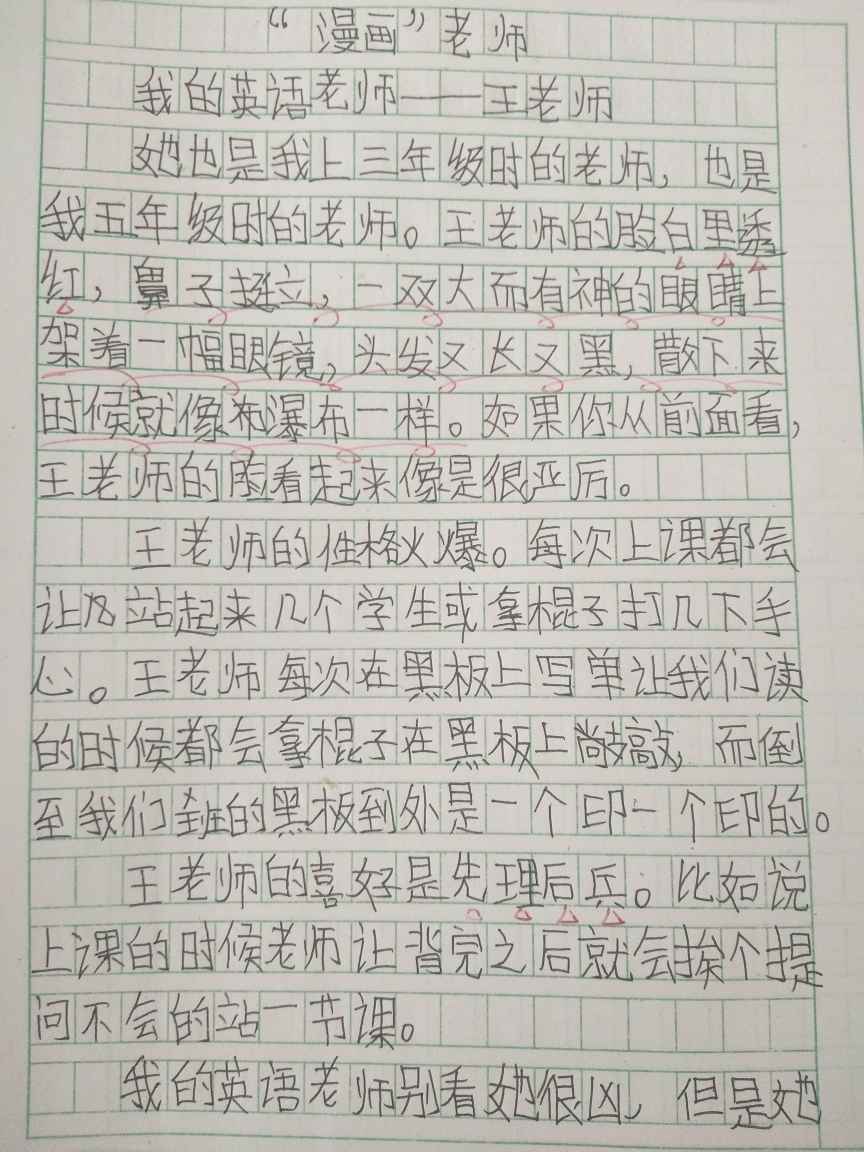 “漫画”老师
我的英语老师——王老师
她也是我上三年级时的老师，也是
我五年级时的老师。王老师的脸白里透
红，鼻子挺立，一双大而有神的眼睛上
架着一幅眼镜，头发又长又黑，散下来
时候就像布瀑布一样。如果你从前面看，
王老师的脸看起来像是很严厉。
王老师的性格火爆。每次上课都会
让站起来几个学生或拿棍子打几下手
心。王老师每次在黑板上写单让我们读
的时候都会拿棍子在黑板上敲敲，而倒
至我们班的黑板到处是一个印一个印的。
王老师的喜好是先理后兵。比如说
上课的时候老师让背完之后就会挨个提
问不会的站一节课。
我的英语老师别看她很凶，但是她